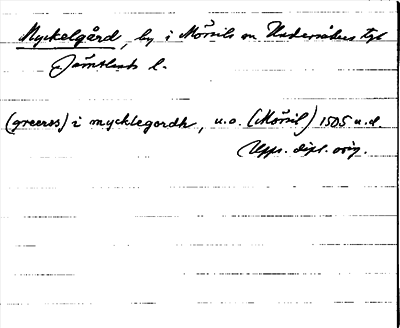 Myckelgård, by i Mörsils sn Undersåkers tgl
Jämtlands l.
(greerss) i mycklegordh, u.o. (Mörsil) 1505 u.d.
Upps. dipl. orig.